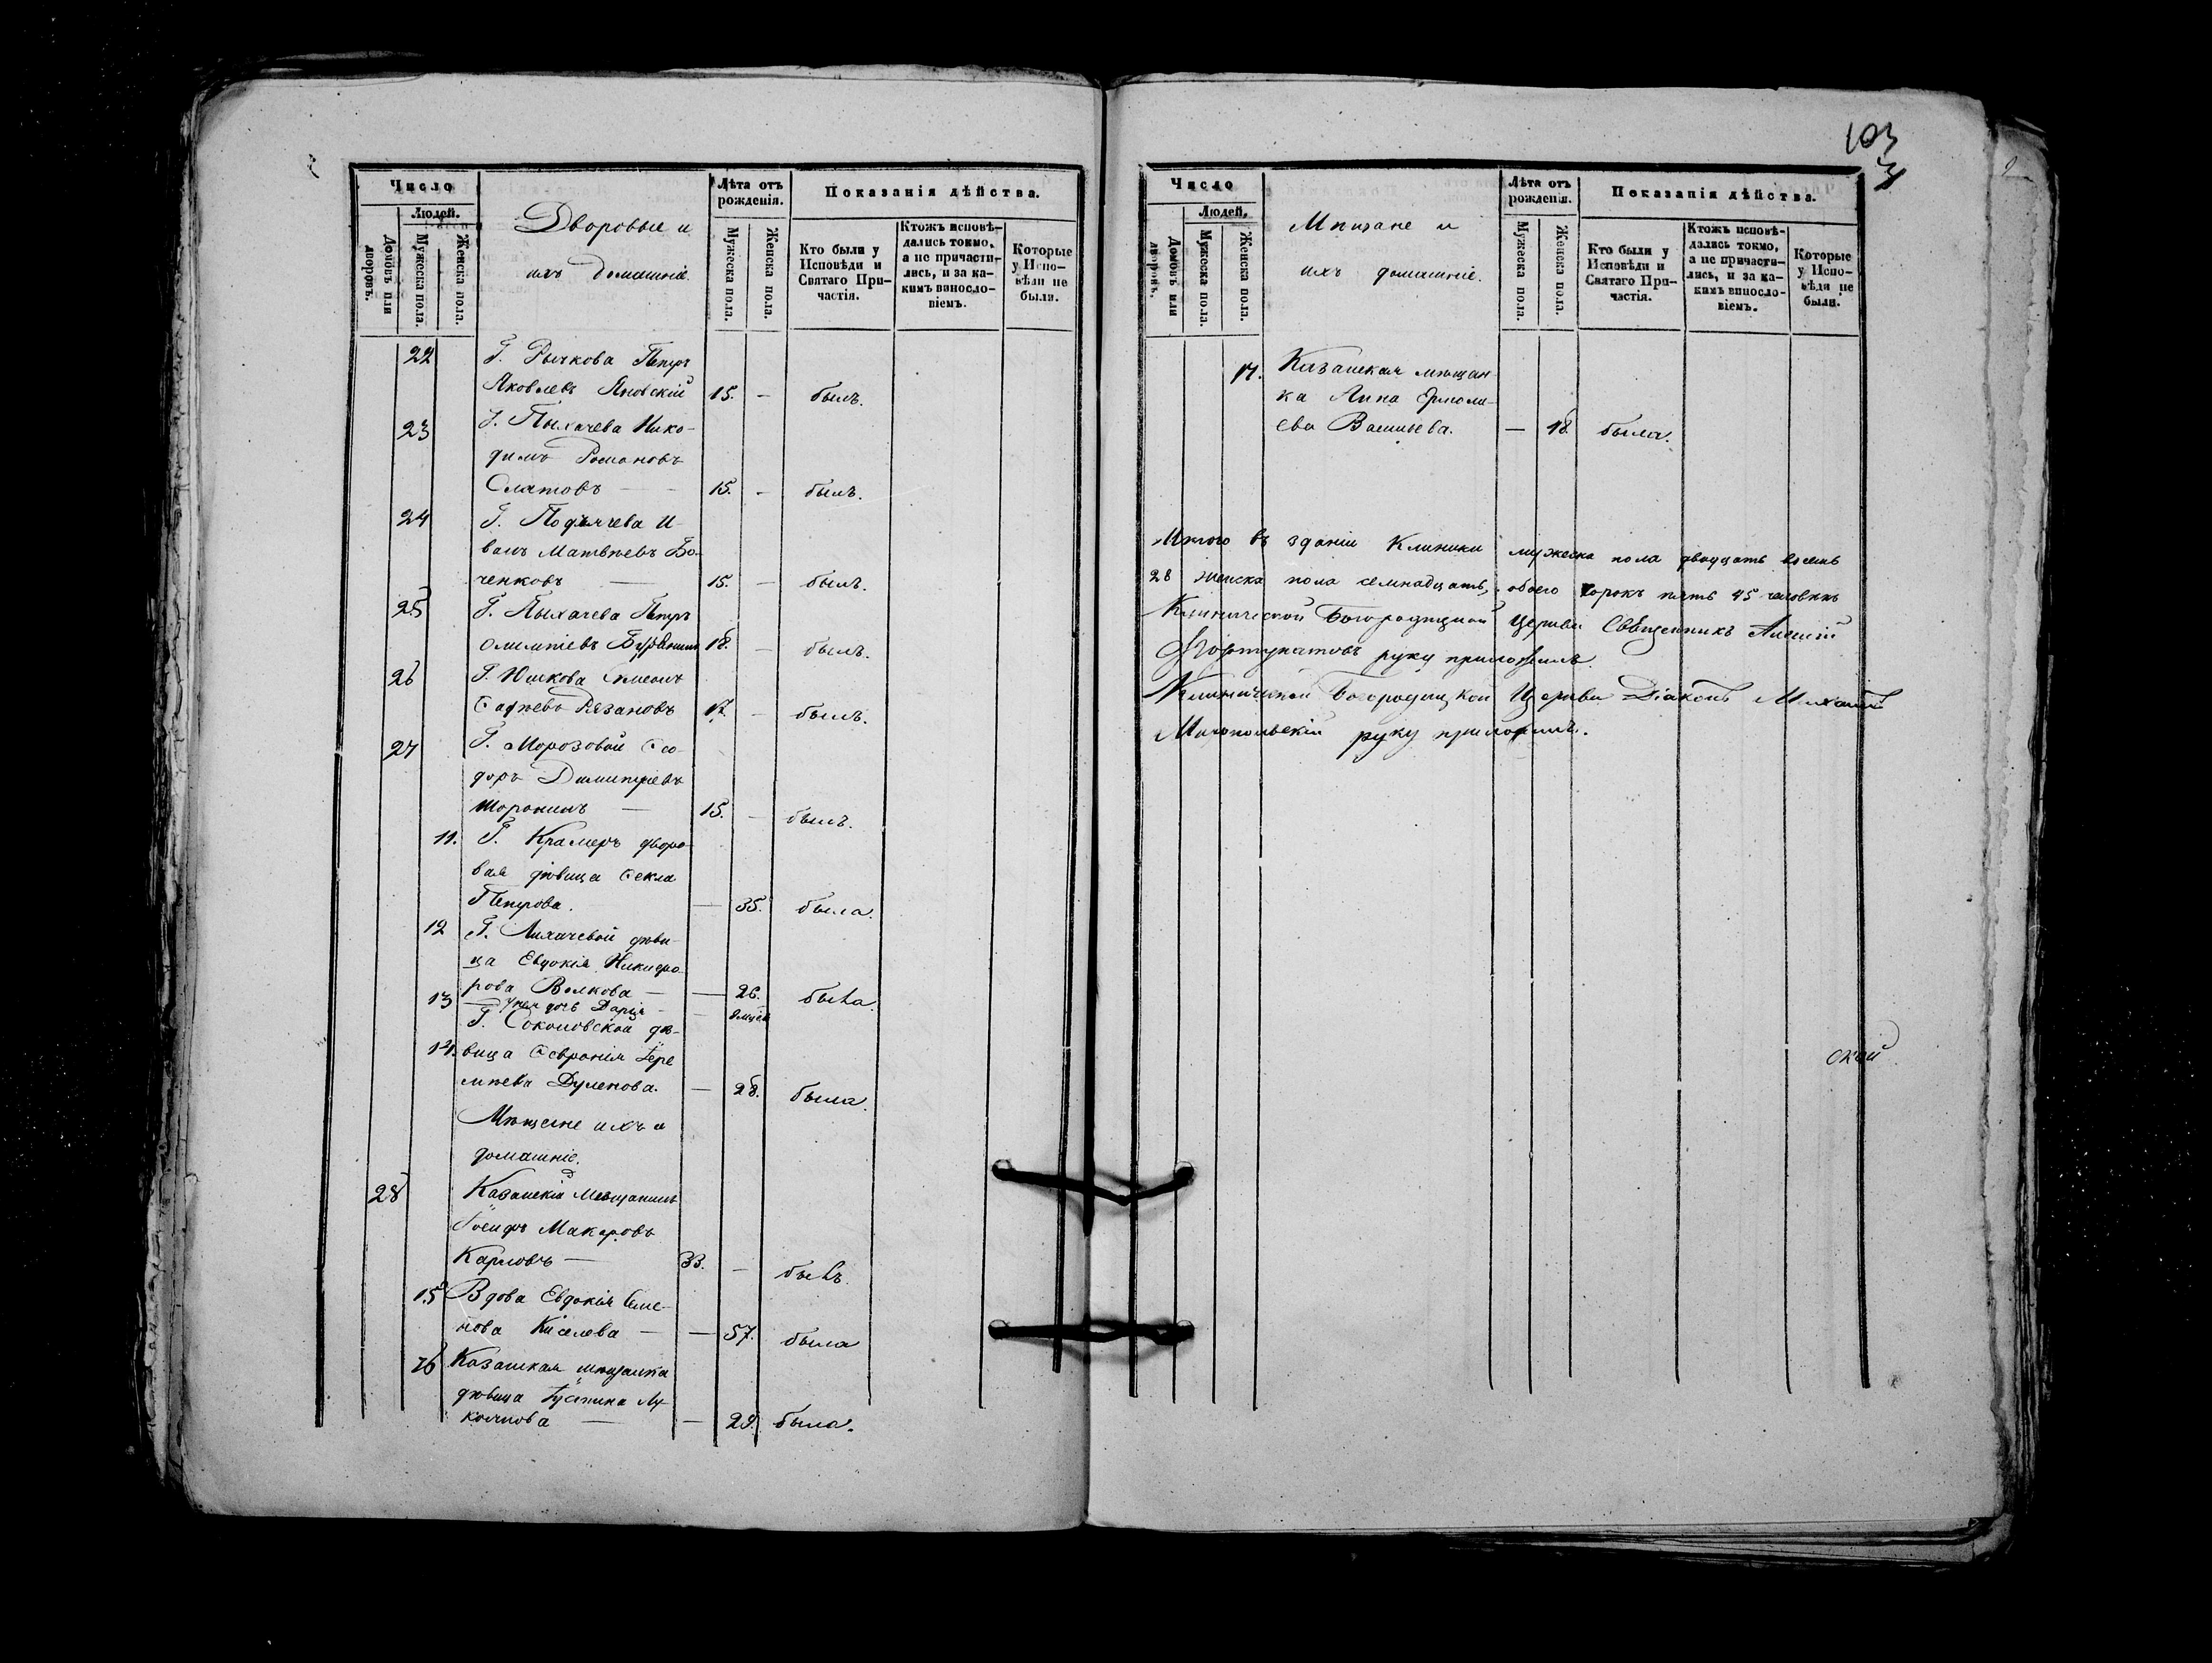 Число
Людей.
Домовъ или дворовъ.
Мужеска пола.
Женска пола.
Дворовые и
ихъ домашніе.
Лѣта отъ рожденія.
Мужеска пола.
Женска пола.
Показанія дѣйства.
Кто были у Исповѣди и Святаго Причастія.
Ктожъ исповѣдались токмо, а не причастились, и за какимъ винословіемъ.
Которые у Исповѣди не были.
22 Г. Рычкова Петръ
Яковлевъ Яновскій 15. — былъ.
23 Г. Пыхачева Нико-
димъ Романовъ
Слатовъ — 15. — былъ.
24 Г. Подъячева И-
ванъ Матвѣевъ Бо-
ченковъ — 15. — былъ.
25 Г. Пыхачева Петръ
Олимпіевъ 18. — былъ.
26 Г. Юшкова Симеонъ
Рязановъ 17. — былъ.
27 Г. Морозовой Ѳео-
доръ Димитріевъ
Шоронинъ — 15. — былъ.
11. Г. Крамеръ дворо-
вая дѣвица Ѳекла
Петрова. — 35. была.
12 Г. Лихачевой дѣви-
ца Евдокія Никифо-
рова Волкова — — 26. была.
13 У ней дочь Дарія —
Г. Соколовской дѣ-
14. вица Ѳевронія Іере
мѣева Дуленова. — 28. была.
Мѣщане ихъ и
домашніе.
28 Казанскій Мещанинъ
Іосифъ Макаровъ
Карповъ — 33. — былъ.
15 Вдова Евдокія Семе-
нова Киселева — — 57. была
16 Казанская мѣщанка
дѣвица Іустина Лу-
коянова — — 29. была.
103
Число
Людей.
Домовъ или дворовъ.
Мужеска пола.
Женска пола.
Мѣщане и
ихъ домашніе.
Лѣта отъ рожденія.
Мужеска пола.
Женска пола.
Показанія дѣйства.
Кто были у Исповѣди и Святаго Причастія.
Ктожъ исповѣдались токмо, а не причастились, и за какимъ винословіемъ.
Которые у Исповѣди не были.
17. Казанская мѣщан-
ка Анна Ермола-
ева Васильева. — 18. была.
Итого въ зданіи Клиники мужеска пола двадцать восемь
28 женска пола семнадцать, обоего сорокъ пять 45 человѣкъ
Клинической Богородицкой Церкви Священникъ Алексій
Фортунатовъ руку приложилъ.
Клинической Богородицкой Церкви Діаконъ Михаилъ
руку приложилъ.
ской